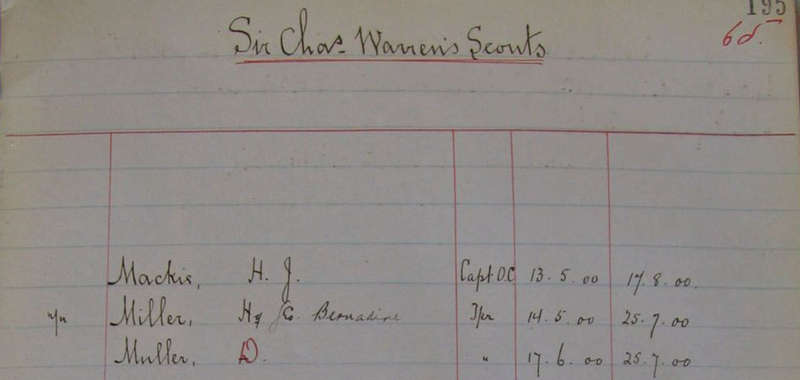 195
6d.
Sir Chas. Warren's Scouts
Mackie, H. J. Capt. O.C 13. 5. 00 17. 8. 00.
Miller, Hy G. Bernadine Tpr 14. 5. 00 25. 7. 00
Muller, D. " 17. 6. 00 25. 7. 00